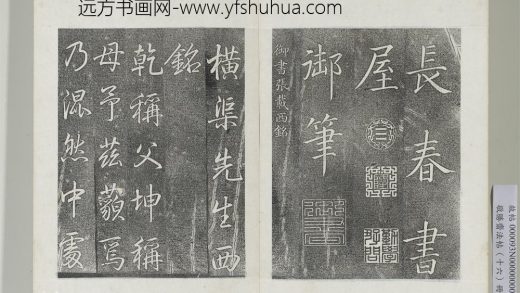 远方书画网-www.yfshuhua.com
長春書
屋
御筆
御書張載西銘
橫渠先生西
銘
乾稱父坤稱
母予茲藐焉
乃混然中處
敬勝齋法帖(十六)冊